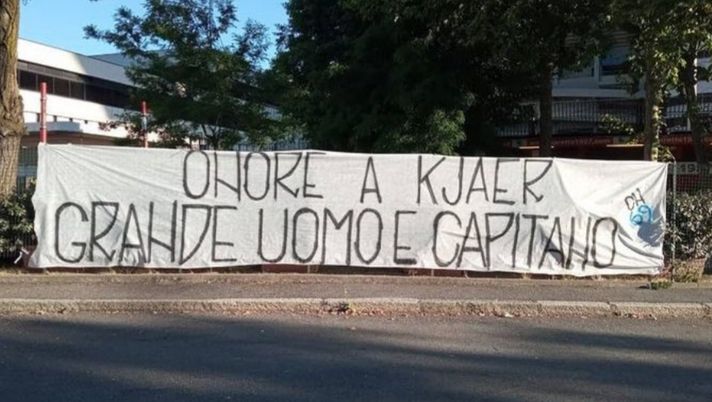 ONORE A KJAER
GRANDE UOMO E CAPITANO
DH
69